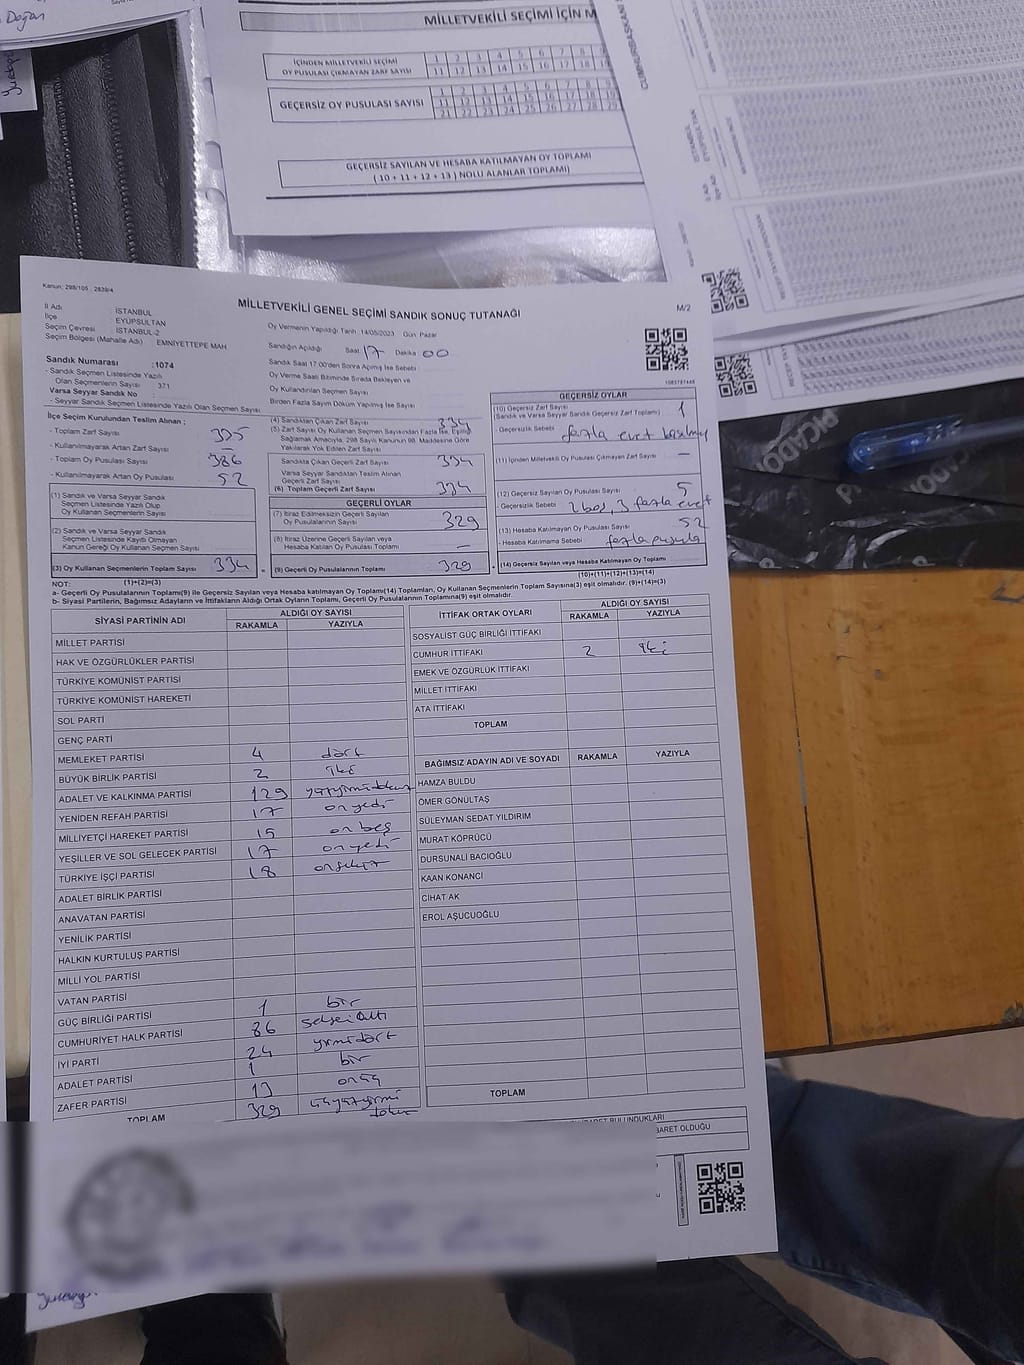 Doğan
MİLLETVEKİLİ SEÇİMİ İÇİN M
İÇİNDEN MİLLETVEKİLİ SEÇİMİ
OY PUSULASI ÇIKMAYAN ZARF SAYISI
1 2 3 4 5 6 7 8 9
11 12 13 14 15 16 17 18
GEÇERSİZ OY PUSULASI SAYISI
1 2 3 4 5 6 7 8
11 12 13 14 15 16 17 18
21 22 23 24 25 26 27 28 29
GEÇERSİZ SAYILAN VE HESABA KATILMAYAN OY TOPLAMI
( 10 + 11 + 12 + 13 ) NOLU ALANLAR TOPLAMI)
Kanun: 298/105 , 2839/4
MİLLETVEKİLİ GENEL SEÇİMİ SANDIK SONUÇ TUTANAĞI
M/2
İl Adı : İSTANBUL
İlçe : EYÜPSULTAN
Seçim Çevresi : İSTANBUL-2
Seçim Bölgesi (Mahalle Adı) : EMNİYETTEPE MAH
Sandık Numarası :1074
- Sandık Seçmen Listesinde Yazılı
Olan Seçmenlerin Sayısı : 371
Varsa Seyyar Sandık No :
- Seyyar Sandık Seçmen Listesinde Yazılı Olan Seçmen Sayısı
Oy Vermenin Yapıldığı Tarih :14/05/2023 Gün: Pazar
Sandığın Açıldığı Saat 17 Dakika 00
Sandık Saat 17:00'den Sonra Açılmış İse Sebebi :
Oy Verme Saati Bitiminde Sırada Bekleyen ve
Oy Kullandırılan Seçmen Sayısı
Birden Fazla Sayım Döküm Yapılmış İse Sayısı
İlçe Seçim Kurulundan Teslim Alınan ;
- Toplam Zarf Sayısı : 395
- Kullanılmayarak Artan Zarf Sayısı : —
- Toplam Oy Pusulası Sayısı : 386
- Kullanılmayarak Artan Oy Pusulası : 52
(1) Sandık ve Varsa Seyyar Sandık
Seçmen Listesinde Yazılı Olup
Oy Kullanan Seçmenlerin Sayısı
(2) Sandık ve Varsa Seyyar Sandık
Seçmen Listesinde Kayıtlı Olmayan
Kanun Gereği Oy Kullanan Seçmen Sayısı
(3) Oy Kullanan Seçmenlerin Toplam Sayısı 334
(4) Sandıktan Çıkan Zarf Sayısı 334
(5) Zarf Sayısı Oy Kullanan Seçmen Sayısından Fazla İse, Eşitliği
Sağlamak Amacıyla, 298 Sayılı Kanunun 98. Maddesine Göre
Yakılarak Yok Edilen Zarf Sayısı
Sandıkta Çıkan Geçerli Zarf Sayısı 334
Varsa Seyyar Sandıktan Teslim Alınan
Geçerli Zarf Sayısı
(6) Toplam Geçerli Zarf Sayısı 334
GEÇERLİ OYLAR
(7) İtiraz Edilmeksizin Geçerli Sayılan
Oy Pusulalarının Sayısı 329
(8) İtiraz Üzerine Geçerli Sayılan veya
Hesaba Katılan Oy Pusulası Toplamı —
(9) Geçerli Oy Pusulalarının Toplamı 329
GEÇERSİZ OYLAR
(10) Geçersiz Zarf Sayısı
(Sandık ve Varsa Seyyar Sandık Geçersiz Zarf Toplamı) : 1
- Geçersizlik Sebebi : fazla evet basılmış
(11) İçinden Milletvekili Oy Pusulası Çıkmayan Zarf Sayısı : —
(12) Geçersiz Sayılan Oy Pusulası Sayısı : 5
- Geçersizlik Sebebi : 2 boş, 3 fazla evet
(13) Hesaba Katılmayan Oy Pusulası Sayısı : 52
- Hesaba Katılmama Sebebi : fazla pusula
(14) Geçersiz Sayılan veya Hesaba Katılmayan Oy Toplamı
NOT: (1)+(2)=(3) (10)+(11)+(12)+(13)=(14)
a- Geçerli Oy Pusulalarının Toplamı(9) ile Geçersiz Sayılan veya Hesaba katılmayan Oy Toplamı(14) Toplamları, Oy Kullanan Seçmenlerin Toplam Sayısına(3) eşit olmalıdır. (9)+(14)=(3)
b- Siyasi Partilerin, Bağımsız Adayların ve İttifakların Aldığı Ortak Oyların Toplamı, Geçerli Oy Pusulalarının Toplamına(9) eşit olmalıdır.
SİYASİ PARTİNİN ADI ALDIĞI OY SAYISI
RAKAMLA YAZIYLA
MİLLET PARTİSİ
HAK VE ÖZGÜRLÜKLER PARTİSİ
TÜRKİYE KOMÜNİST PARTİSİ
TÜRKİYE KOMÜNİST HAREKETİ
SOL PARTİ
GENÇ PARTİ
MEMLEKET PARTİSİ 4 dört
BÜYÜK BİRLİK PARTİSİ 2 iki
ADALET VE KALKINMA PARTİSİ 129 yüzyirmidokuz
YENİDEN REFAH PARTİSİ 17 onyedi
MİLLİYETÇİ HAREKET PARTİSİ 15 onbeş
YEŞİLLER VE SOL GELECEK PARTİSİ 17 onyedi
TÜRKİYE İŞÇİ PARTİSİ 18 onsekiz
ADALET BİRLİK PARTİSİ
ANAVATAN PARTİSİ
YENİLİK PARTİSİ
HALKIN KURTULUŞ PARTİSİ
MİLLİ YOL PARTİSİ
VATAN PARTİSİ
GÜÇ BİRLİĞİ PARTİSİ 1 bir
CUMHURİYET HALK PARTİSİ 86 seksenaltı
İYİ PARTİ 24 yirmidört
ADALET PARTİSİ 1 bir
ZAFER PARTİSİ 13 onüç
TOPLAM 329 üçyüzyirmi
dokuz
İTTİFAK ORTAK OYLARI ALDIĞI OY SAYISI
RAKAMLA YAZIYLA
SOSYALİST GÜÇ BİRLİĞİ İTTİFAKI
CUMHUR İTTİFAKI 2 iki
EMEK VE ÖZGÜRLÜK İTTİFAKI
MİLLET İTTİFAKI
ATA İTTİFAKI
TOPLAM
BAĞIMSIZ ADAYIN ADI VE SOYADI RAKAMLA YAZIYLA
HAMZA BULDU
ÖMER GÖNÜLTAŞ
SÜLEYMAN SEDAT YILDIRIM
MURAT KÖPRÜCÜ
DURSUNALİ BACIOĞLU
KAAN KONANCİ
CİHAT AK
EROL AŞUCUOĞLU
TOPLAM
BARET OLDUĞU